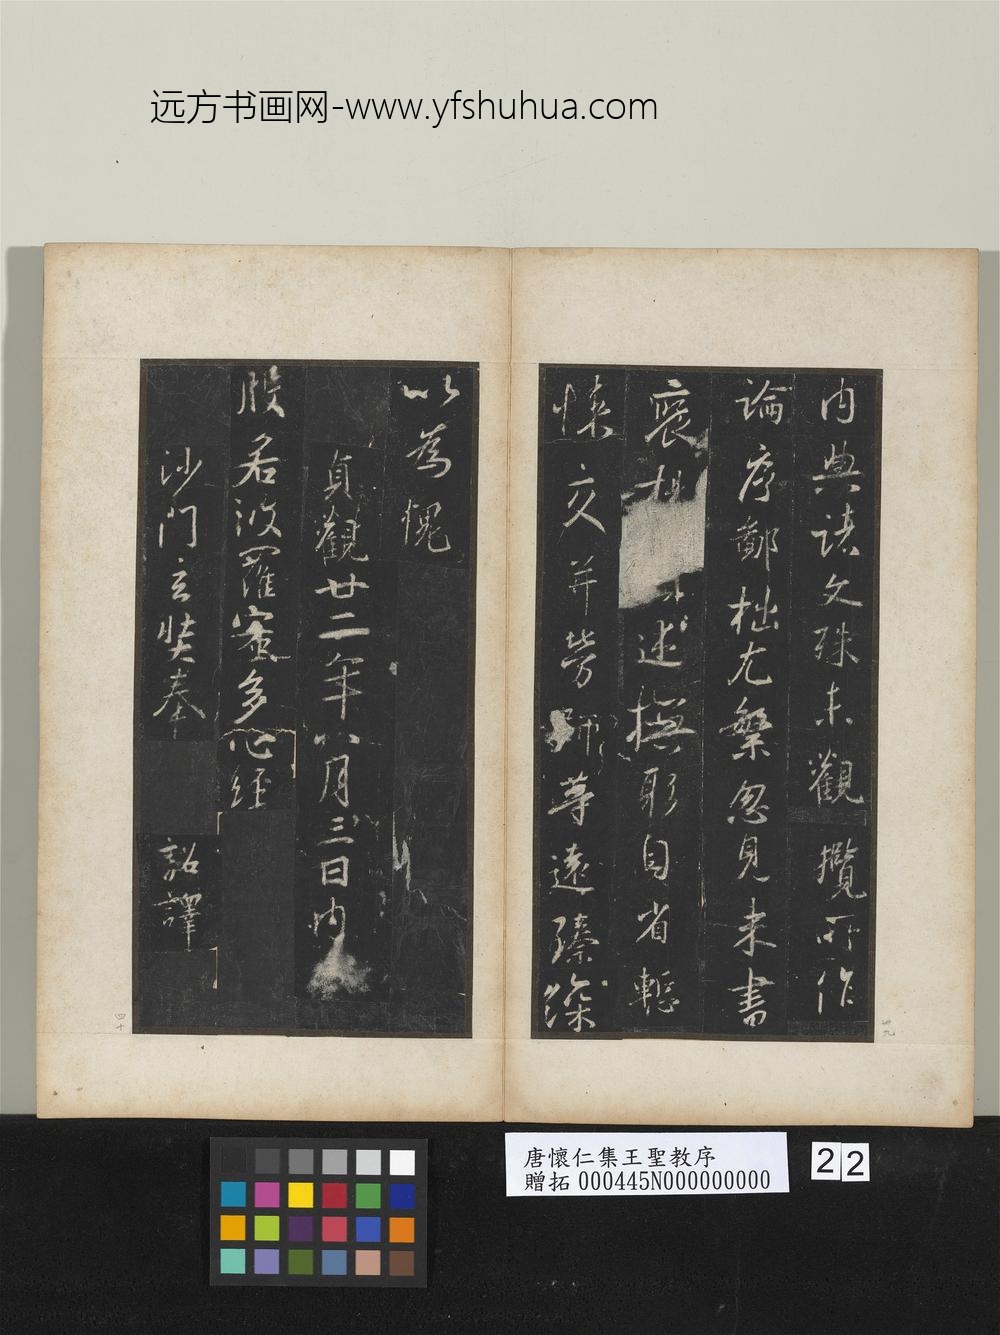 远方书画网-www.yfshuhua.com
内典諸文殊未觀攬所作
論序鄙拙尤繁忽見来書
褒述撫躬自省慙
悚交并勞師等遠臻深
以為愧
貞觀廿二年八月三日内
般若波羅蜜多心經
沙門玄奘奉 詔譯
卅九
四十
唐懷仁集王聖教序
贈拓 000445N000000000
22